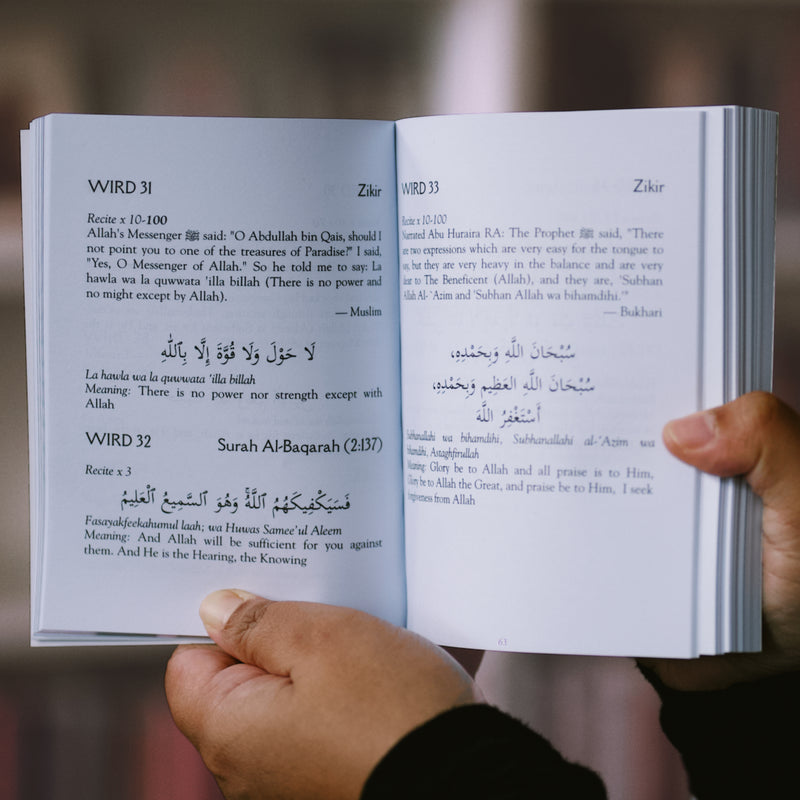 WIRD 31 Zikir
Recite x 10-100
Allah's Messenger ﷺ said: "O Abdullah bin Qais, should I
not point you to one of the treasures of Paradise?" I said,
"Yes, O Messenger of Allah." So he told me to say: La
hawla wa la quwwata 'illa billah (There is no power and
no might except by Allah).
— Muslim
لَا حَوْلَ وَلَا قُوَّةَ إِلَّا بِٱللَّٰهِ
La hawla wa la quwwata 'illa billah
Meaning: There is no power nor strength except with
Allah
WIRD 32 Surah Al-Baqarah (2:137)
Recite x 3
فَسَيَكْفِيكَهُمُ ٱللَّهُ ۚ وَهُوَ ٱلسَّمِيعُ ٱلْعَلِيمُ
Fasayakfeekahumul laah; wa Huwas Samee'ul Aleem
Meaning: And Allah will be sufficient for you against
them. And He is the Hearing, the Knowing
WIRD 33 Zikir
Recite x 10-100
Narrated Abu Huraira RA: The Prophet ﷺ said, "There
are two expressions which are very easy for the tongue to
say, but they are very heavy in the balance and are very
dear to The Beneficent (Allah), and they are, 'Subhan
Allah Al-`Azim and 'Subhan Allah wa bihamdihi.'"
— Bukhari
سُبْحَانَ اللَّهِ وَبِحَمْدِهِ،
سُبْحَانَ اللَّهِ العَظِيمِ وَبِحَمْدِهِ،
أَسْتَغْفِرُ اللَّهَ
Subhanallahi wa bihamdihi, Subhanallahi al-'Azim wa
bihamdihi, Astaghfirullah
Meaning: Glory be to Allah and all praise is to Him,
Glory be to Allah the Great, and praise be to Him, I seek
forgiveness from Allah
63